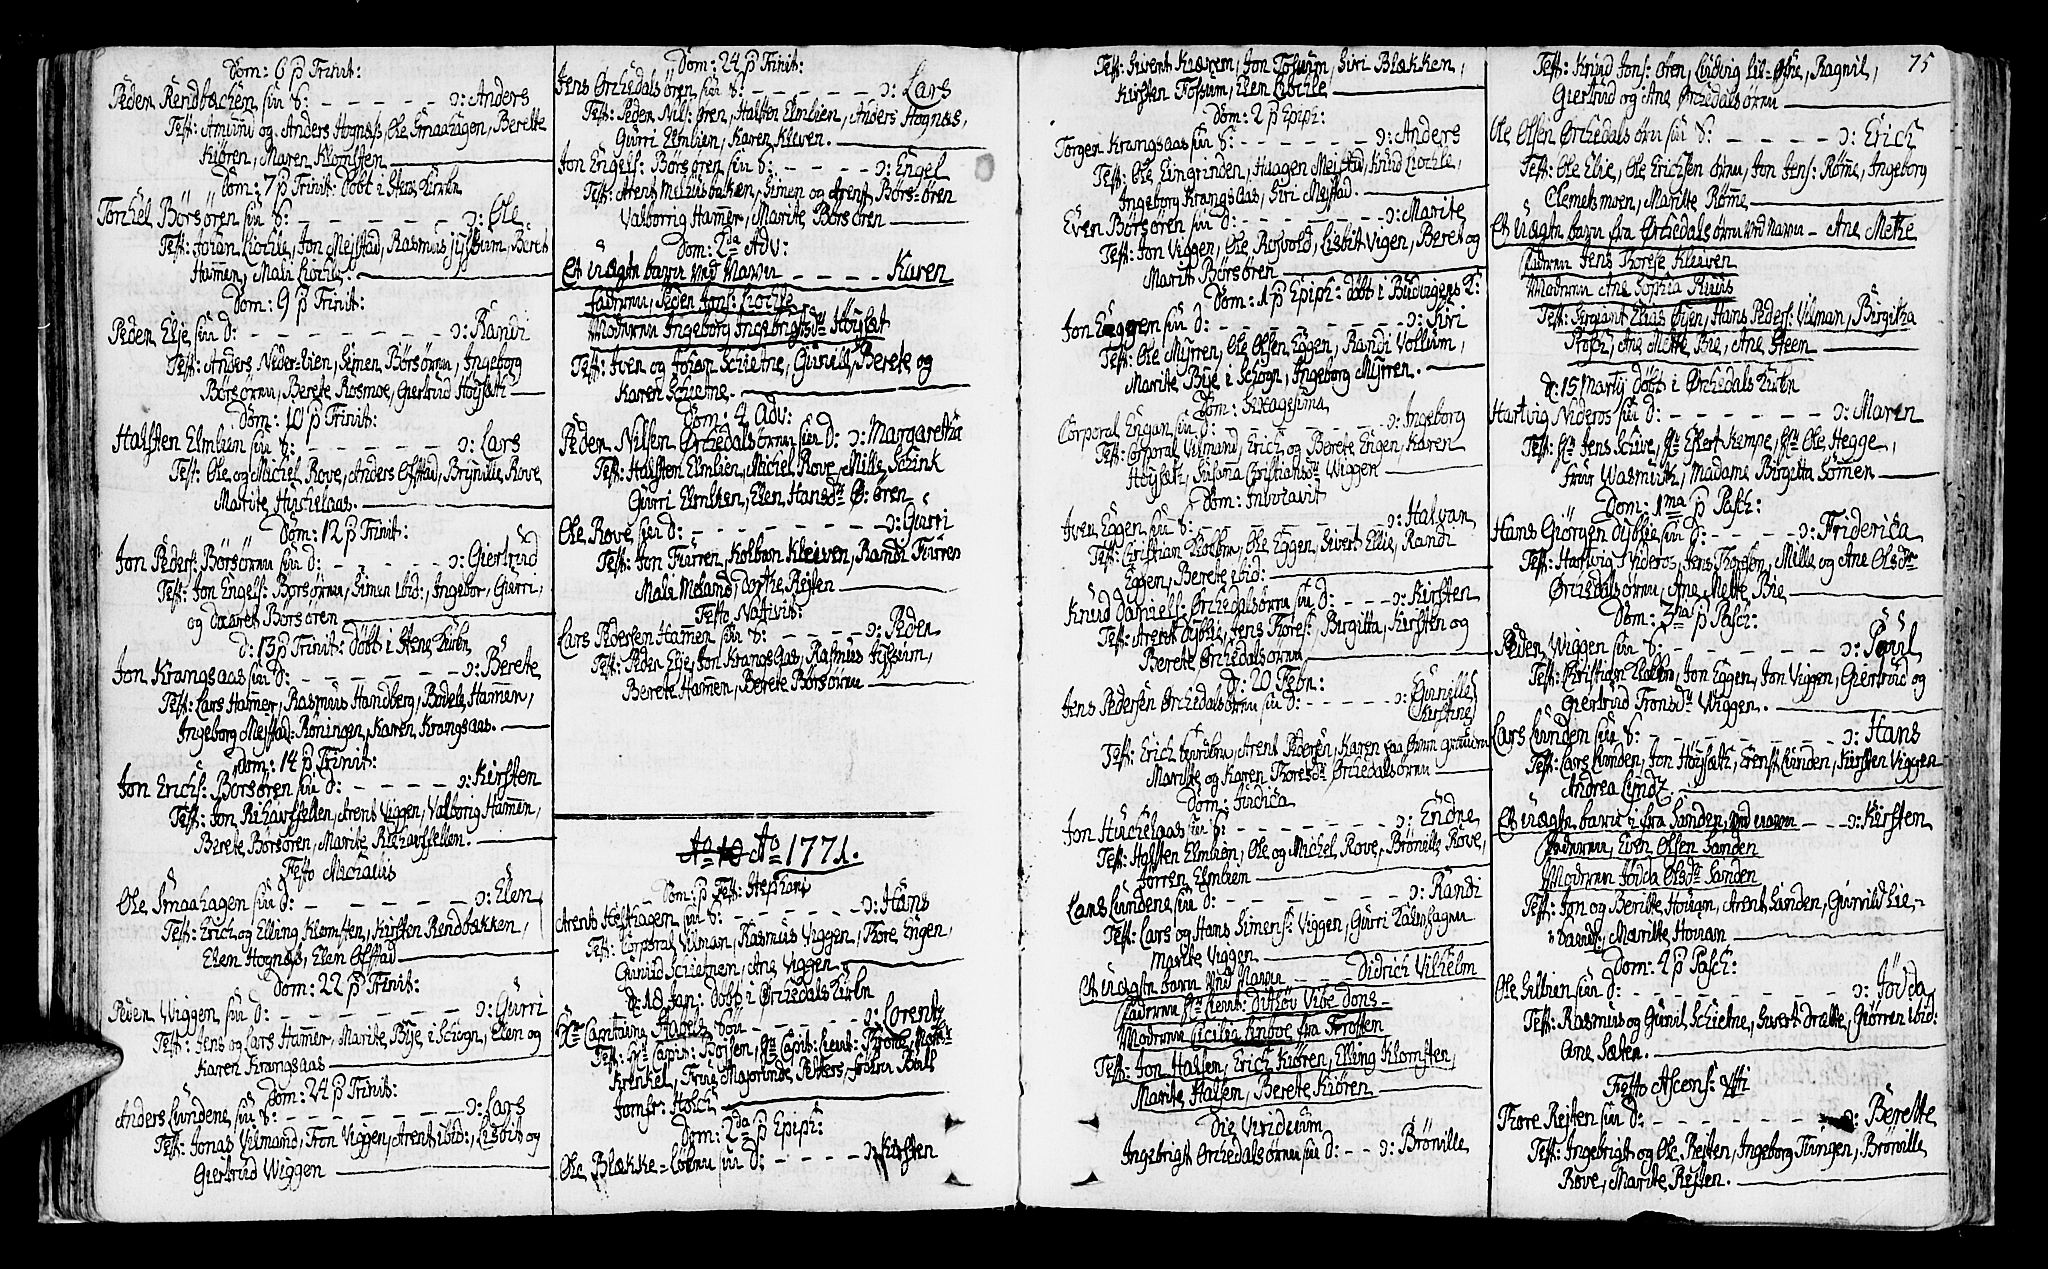 Dom: 6 p Trinit:
Peder Rendbachen sin S: - - - - - ɔ: Anders
Test: Amund og Anders Hognæs, Ole Smaahagen, Berette
Kiøren, Maren Klomsten
Dom: 7 p Trinit: døbt i
Torchel Børsøren sin S: - - - - - ɔ: Ole
Test: Johan Lochle, Jon Mejstad, Rasmus, Beret
Hamen, Mali Lochle.
Dom: 9 p Trinit:
Peder Elje sin D: - - - - - ɔ: Randi
Test: Anders Nederlien, Simen Børsørnn, Ingeborg
Børsørnn, Berete Rosmoe, Giertrud Høysæt
Dom: 10 p Trinit:
Halsten Elmlien sin S: - - - - - ɔ: Lars
Test: Ole og Michel Rove, Anders Olstad, Brynille Rove
Marite Huchelaas.
Dom: 12 p Trinit:
Jon Peders: Børsørnn sin D: - - - - - ɔ: Giertrud
Test: Jon Engels: Børsørnn, Simen ibid:, Ingebor, Giurri,
og Maret Børsøren
D: 13 p Trinit: døbt i
Jon Krangsaas sin D: - - - - - ɔ: Berete
Test: Lars Hamer, Rasmus Handberg, Bodele Hamen,
Ingeborg Mejstad: Røningen, Karen Krangsaas.
Dom: 14 p Trinit:
Jon Erichs: Børsøren sin D: - - - - ɔ: Kirsten
Test: Jon, Arent Viggen, Valborg Hamen,
Berete Børsøren, Marite
Festo Michaelis
Ole Smaahagen sin D: - - - - - ɔ: Elen
Test: Erich og Elling Klomsten, Kirsten Rendbakken,
Elen Hognæss, Elen Olstad
Dom: 22 p Trinit:
Peder Wiggen sin D: - - - - - ɔ: Gurri
Test: Jens og Lars Hamer, Marite Bye i Schogn, Elen og
Karen Krangsaas
Dom: 24 p Trinit:
Anders Lundene sin S: - - - - - ɔ: Lars
Test: Jonas Vilmand, Tron Viggen, Arent ibid:, Lisbit og
Giertrud Wiggen
Dom: 24 p Trinit:
Jens Ørchedalsøren sin S: - - - - - ɔ: Lars
Test: Peder Nils: Øren, Halsten Elmlien, Anders Hognæs,
Gurri Elmlien, Karen Kleven.
Jon Engels: Børsøren sin S: - - - - ɔ: Engel
Test: Arent Melhusbakken, Simen og Arent Børs-øren
Valborrig Hamer, Marite Børsøren
Dom: 2da Adv:
Et uægte barn ved Navn - - - - Karen
Fadren, Peder Jons: Lochle
Modren Ingeborg Ingebrigtsdr Høysæt
Test: Iver og Johan Schietne, Gunild, Berete og
Karen Schietne.
Dom: 4 Adv:
Peder Nilsen Ørchedalsørnn sin D: ɔ: Margaretha
Test: Halsten Elmlien, Michel Rove, Mille Schink
Gurri Elmlien, Elen Hansdr Ø: øren
Ole Rove sin D: - - - - - ɔ: Gurri
Test: Jon Furren, Kolbørn Kleiven, Randi Furren
Mali Meland, Dorthe Rejten
Festo Nativit:
Lars Pedersen Hamen sin S: - - - - - ɔ: Peder
Test: Peder Elje, Jon Krangsaas, Rasmus,
Berete Hamen, Berete Børsørnn
Ao 1771.
Dom: p Fest: Stephani
Arent Helthagen sin S: - - - - - ɔ: Hans
Test: Corporal Vilman, Rasmus Viggen, Thore Engen,
Gunild Schietnen, Ane Viggen
d: 18 Jan: døbt i Ørchedals Kirken
Hr Capitaine Søn - - - - - ɔ: Lorentz
Test: Hr Capit: Bojsen, Hr Capit: Lieut: Krone,
Krenkel, Frue Majorinde Peters,
Jomfr: Holch
Dom: 2da p Epiph:
Ole Blække-løkenn sin D: - - - - - ɔ: Kirsten
Test: Sivert Kiæren, Jon Fossum, Siri Blækken,
Kirsten Fossum, Elen Lochle
Dom: 2 p Epiph:
Torger Krangsaas sin S: - - - - - ɔ: Anders
Test: Ole Eingrinden, Haagen Mejstad, Knud Lochle,
Ingeborg Krangsaas, Siri Mejstad.
Even Børsøren sin D: - - - - - ɔ: Marite
Test: Jon Viggen, Ole Rosvold, Lisbit Vigen, Beret og
Marit Børsøren
Dom: 1 p Epiph: døbt i Budvigens K:
Jon Eggen sin D: - - - - - ɔ: Siri
Test: Ole Myrren, Ole Olsen Eggen, Randi Vollum,
Marite Bye i Schogn, Ingeborg Myrren.
Dom: Sexagesima
Corporal Engan sin D: - - - - - ɔ: Ingeborg
Test: Corporal Vilmand, Erich og Berete Engen, Karen
Høysæt, Susana Christiansdr Wiggen
Dom: Invocavit
Iver Eggen sin S: - - - - - ɔ: Halvan
Test: Christian, Ole Eggen, Sivert Elie, Randi
Eggen, Berete ibid:
Knud Daniels: Ørchedalsørnn sin D: - - - ɔ: Kirsten
Test: Arent, Jens Thores:, Birgitta, Kirsten og
Berete Ørchedalsørnn
d: 20 Febr:
Jens Pedersen Ørchedalsørnn sin D: - - - - - ɔ: Gunille Kirstine
Test: Erich, Arent Pedersen, Karen
Marite og Karen Thoresdr Ørchedalsørnn
Dom: Judica
Jon Huchelaas sin S: - - - - - ɔ: Endre
Test: Halsten Elmlien, Ole og Michel Rove, Brønille Rove,
Jørren Elmlien
Lars Lundene sin D: - - - - - ɔ: Randi
Test: Lars og Hans Simens: Viggen, Gurri
Marite Viggen
Et uægte barn ved Navn Didrich Vilhelm
Fadren Hr Lieut: Ditløv Vibe Dons
Modren Cicilia Kinboe fra Frosten
Test: Jon Halsen, Erich Kiøren, Elling Klomsten,
Marite Halsen, Berete Kiøren
Die Viridium
Ingebrigt Ørchedalsørnn sin D: - - ɔ: Brønille
75
Test: Knud Jons: Øren, Ludvig, Ragnil,
Giertrud og Ane Ørchedalsørnn
Ole Olsen Ørchedalsørnn sin S: - - - - - ɔ: Erich
Test: Ole Elie, Ole Erichsen ørnn, Jon Jens: Røme, Ingeborg
Clemetsmoen, Maritte Røme
Et uægte barn fra Ørchedalsørnn ved Navn - Ane Metke
Fadren Jens Thorese Kleiven
Modren Ane Sophia
Test: Sergiant Elias Øyen, Hans Peders: Vilman, Birgitha
Ane Mette Bie, Ane Steen
d: 15 Martij døbt i Ørchedals Kirken
Hartvig Nideros sin D: - - - - - ɔ: Maren
Test: Hr Jens Schive, Hr Ekert Kempe, Hr Ole Hegge,
Frue Wasmuth, Madame Birgitta Somen
Dom: 1ma p Pasch:
Hans Giørgen sin D: - - - - - ɔ: Friderica
Test: Hartvig Nideros, Jens Thoresen, Mille og Ane Olsdr
Ørchedalsørnn, Ane Mette Bie
Dom: 3tia p Pasch:
Peder Wiggen sin S: - - - - - ɔ: Poul
Test: Christian, Jon Eggen, Jon Viggen, Giertrud og
Giertrud Tronsdr Wiggen.
Lars Lunden sin S: - - - - - ɔ: Hans
Test: Lars Lunden, Jon Høysæth, Ernst Lunden, Kirsten Viggen
Andrea Lyndz.
Et uægte barn fra Sanden, ved navn - - - ɔ: Kirsten
Fadren, Even Olsen Sanden
Modren Jødda Olsdr Sanden
Test: Jon og Beritte Hovam, Arent Linden, Gunild Lie-
Maritte Hovam
Dom: 4 p Pasch:
Ole sin D: - - - - - ɔ: Jødda
Test: Rasmus og Gunil Schietne, Sivert, Giørren ibid:
Ane Sæter.
Festo Ascens: Xsti
Thore Rejten sin D: - - - - - ɔ: Berette
Test: Ingebrigt og Ole Rejten, Ingeborg Tungen, Brønille
Rove, Marite Rejten.